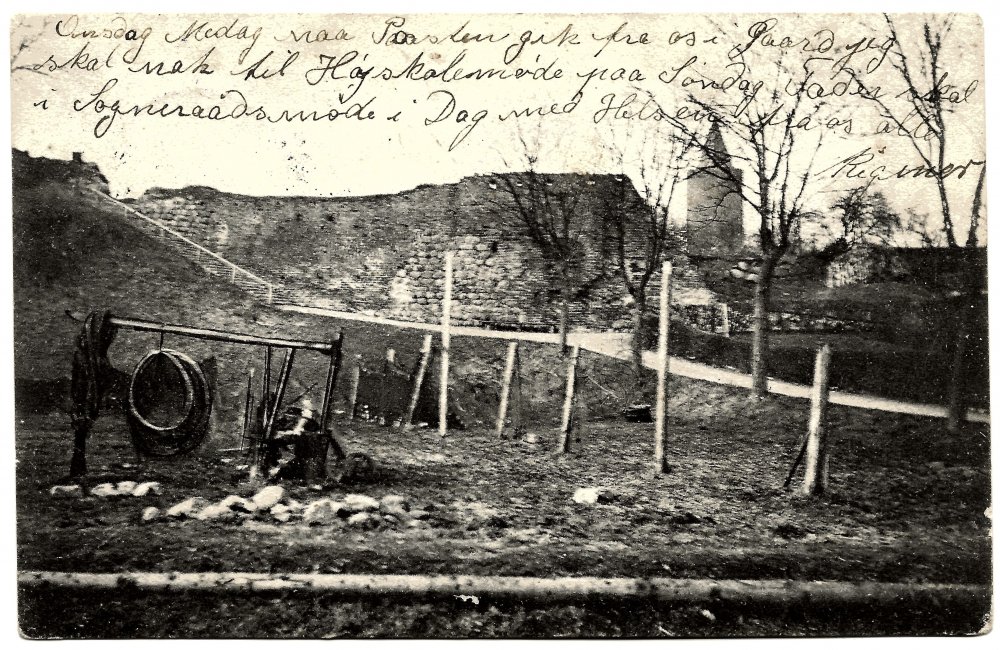 Onsdag Middag naa Posten gik fra os i Gaard jeg
skal nok til Højskolemøde paa Søndag Fader skal
i Sogneraadsmøde i Dag med Hilsen fra os alle